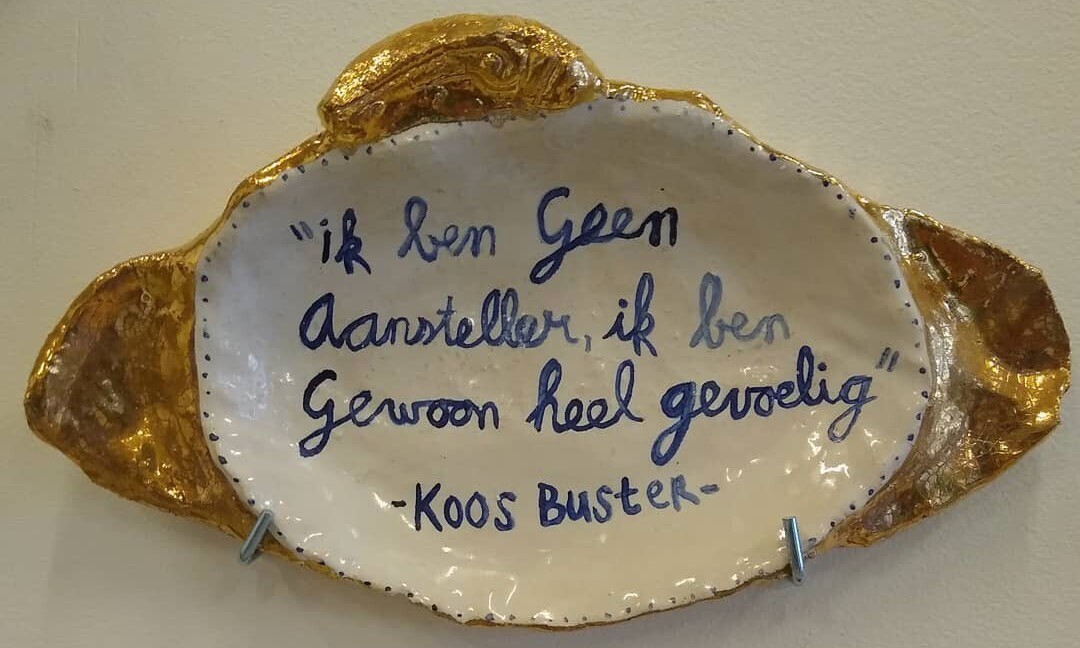 "ik ben Geen
Aansteller, ik ben
Gewoon heel gevoelig"
-Koos Buster-